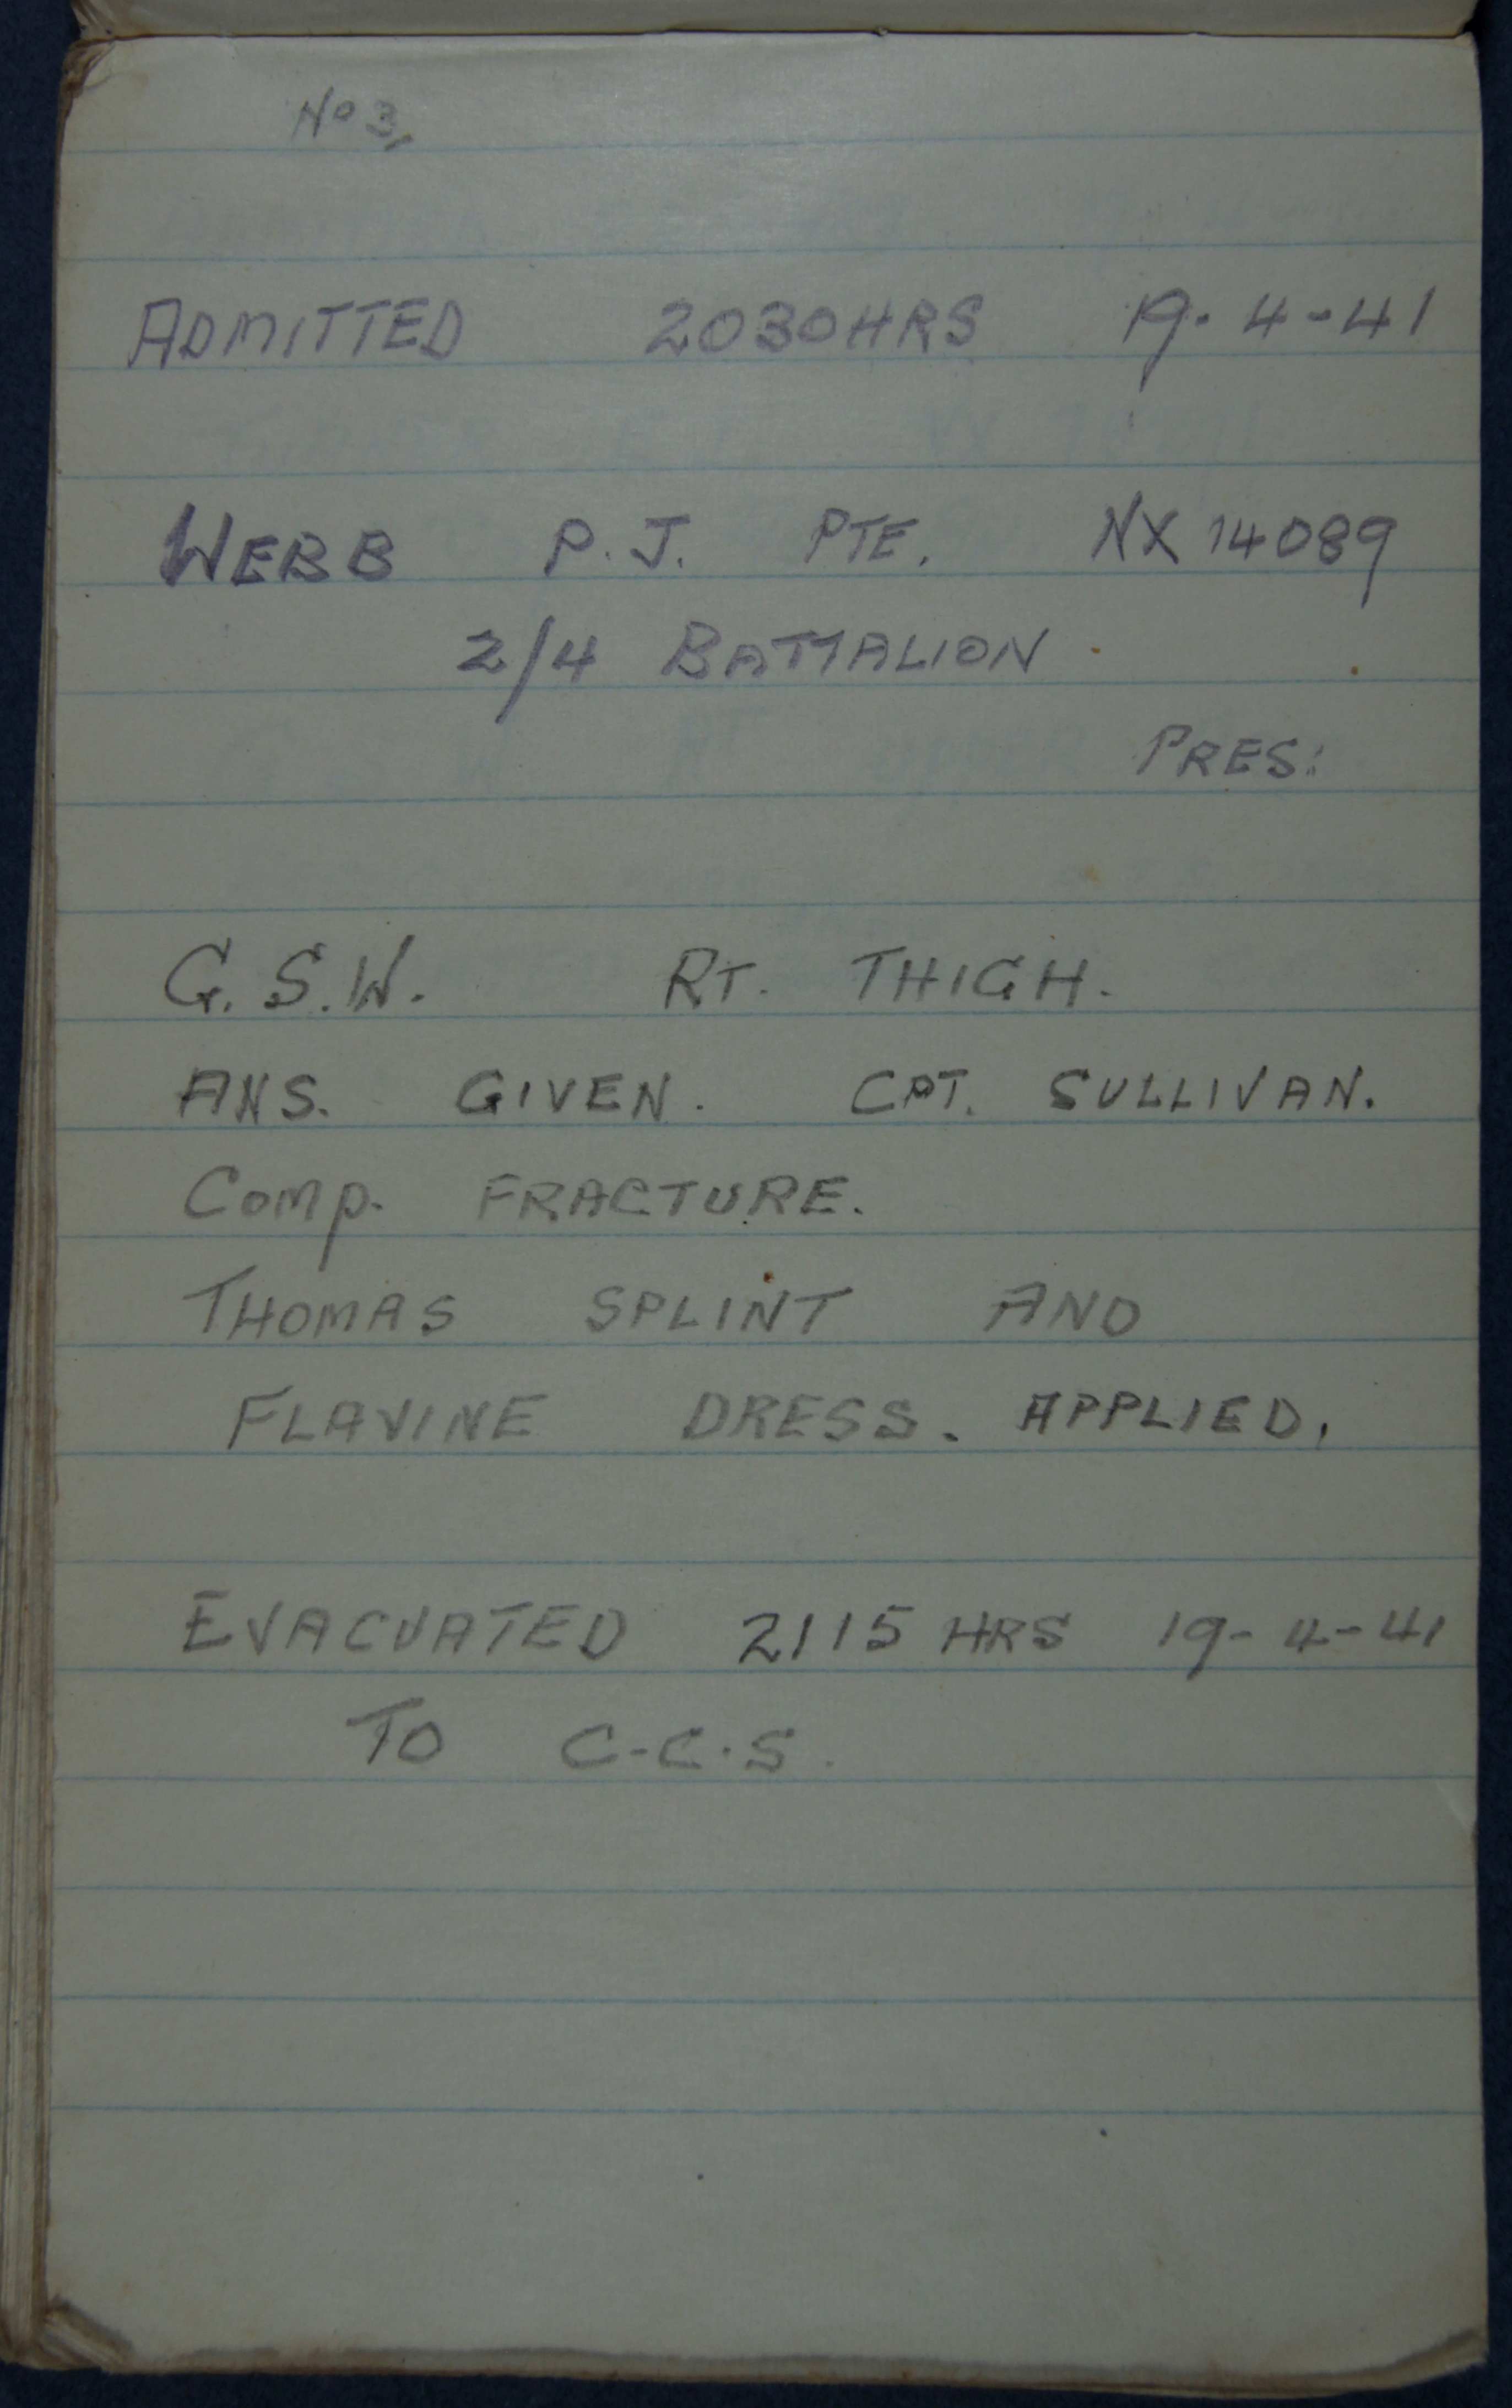 No 3,
ADMITTED 2030 HRS 19-4-41
WEBB P.J. PTE. NX 14089
2/4 BATTALION
PRES:
G.S.W. RT. THIGH.
ANS. GIVEN. CPT. SULLIVAN.
Comp. FRACTURE.
THOMAS SPLINT AND
FLAVINE DRESS. APPLIED.
EVACUATED 2115 HRS 19-4-41
TO C.C.S.